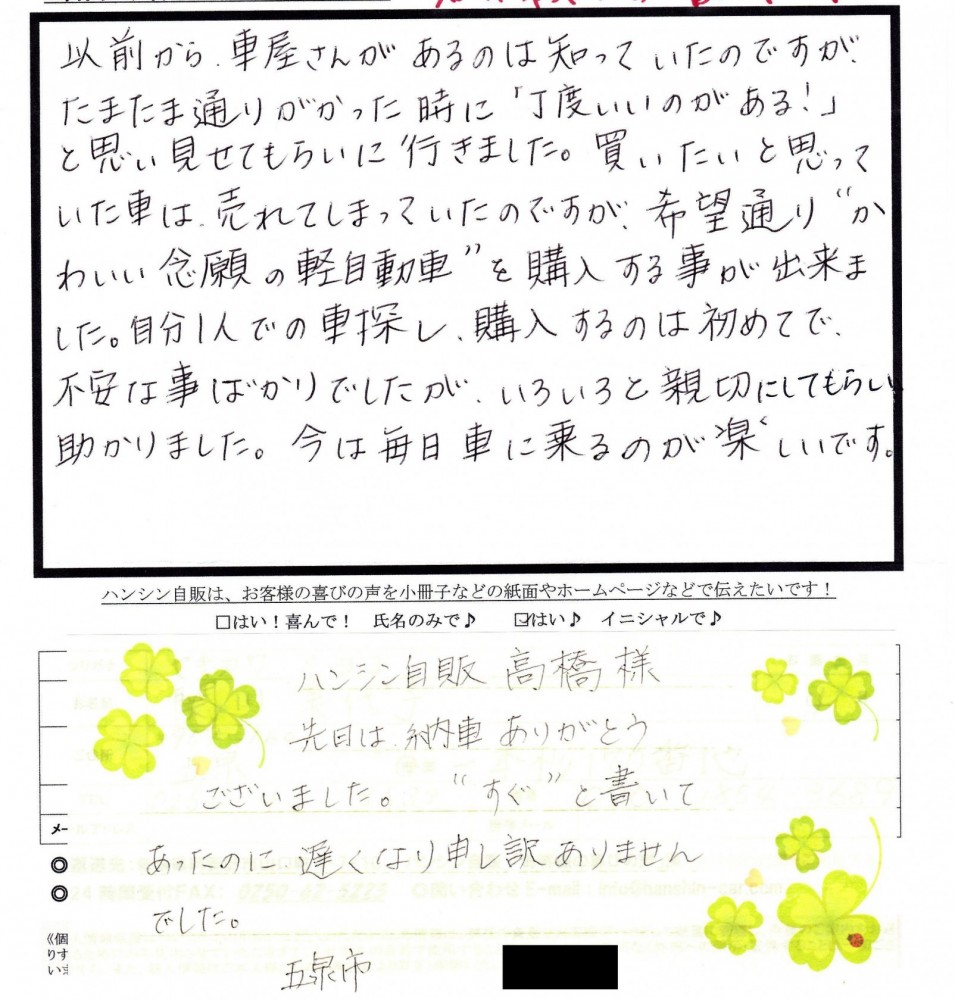 以前から、車屋さんがあるのは知っていたのですが、
たまたま通りがかった時に「丁度いいのがある！」
と思い見せてもらいに行きました。買いたいと思って
いた車は、売れてしまっていたのですが、希望通り“か
わいい念願の軽自動車”を購入する事が出来ま
した。自分1人での車探し、購入するのは初めてで、
不安な事ばかりでしたが、いろいろと親切にしてもらい
助かりました。今は毎日車に乗るのが楽しいです。
ハンシン自販は、お客様の喜びの声を小冊子などの紙面やホームページなどで伝えたいです！
□はい！喜んで！　氏名のみで♪　☑はい♪　イニシャルで♪
ハンシン自販 高橋様
先日は、納車ありがとう
ございました。“すぐ”と書いて
あったのに、遅くなり申し訳ありません
でした。
五泉市
メー
◎
◎
《個
りす
いま